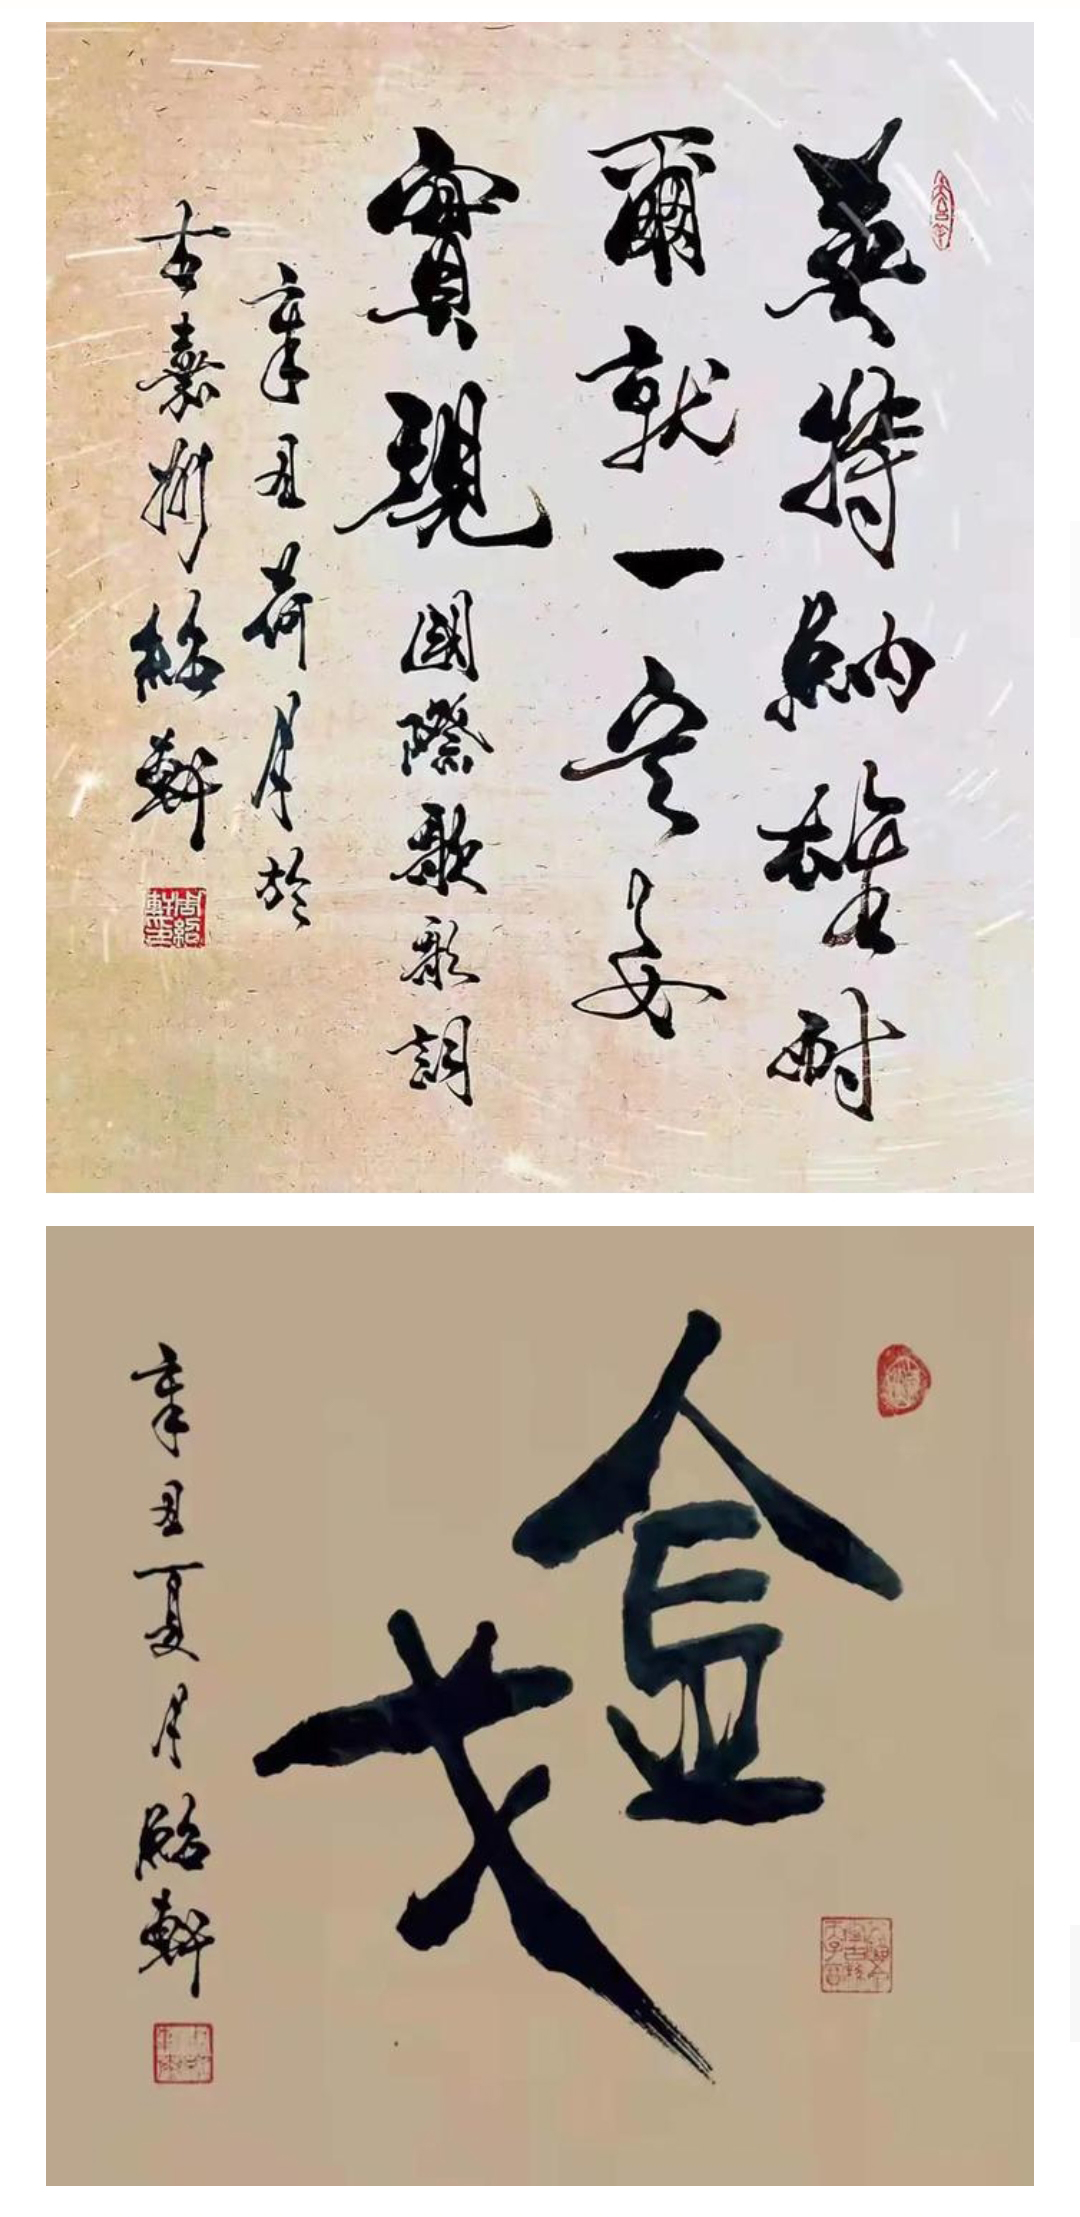 英特納雄耐
爾就一定要
實現 國際歌歌詞
辛丑荷月於
古襄州紹軒
周紹軒印
辛丑夏月紹軒